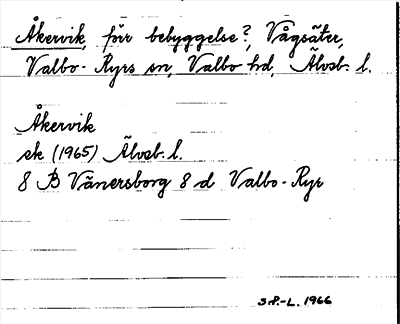 Åkervik, förr bebyggelse?, Vågsäter,
Valbo-Ryrs sn, Valbo hd, Älvsb. l.
Åkervik
ek (1965) Älvsb. l.
8 B Vänersborg 8 d Valbo-Ryr
S.P.-L. 1966